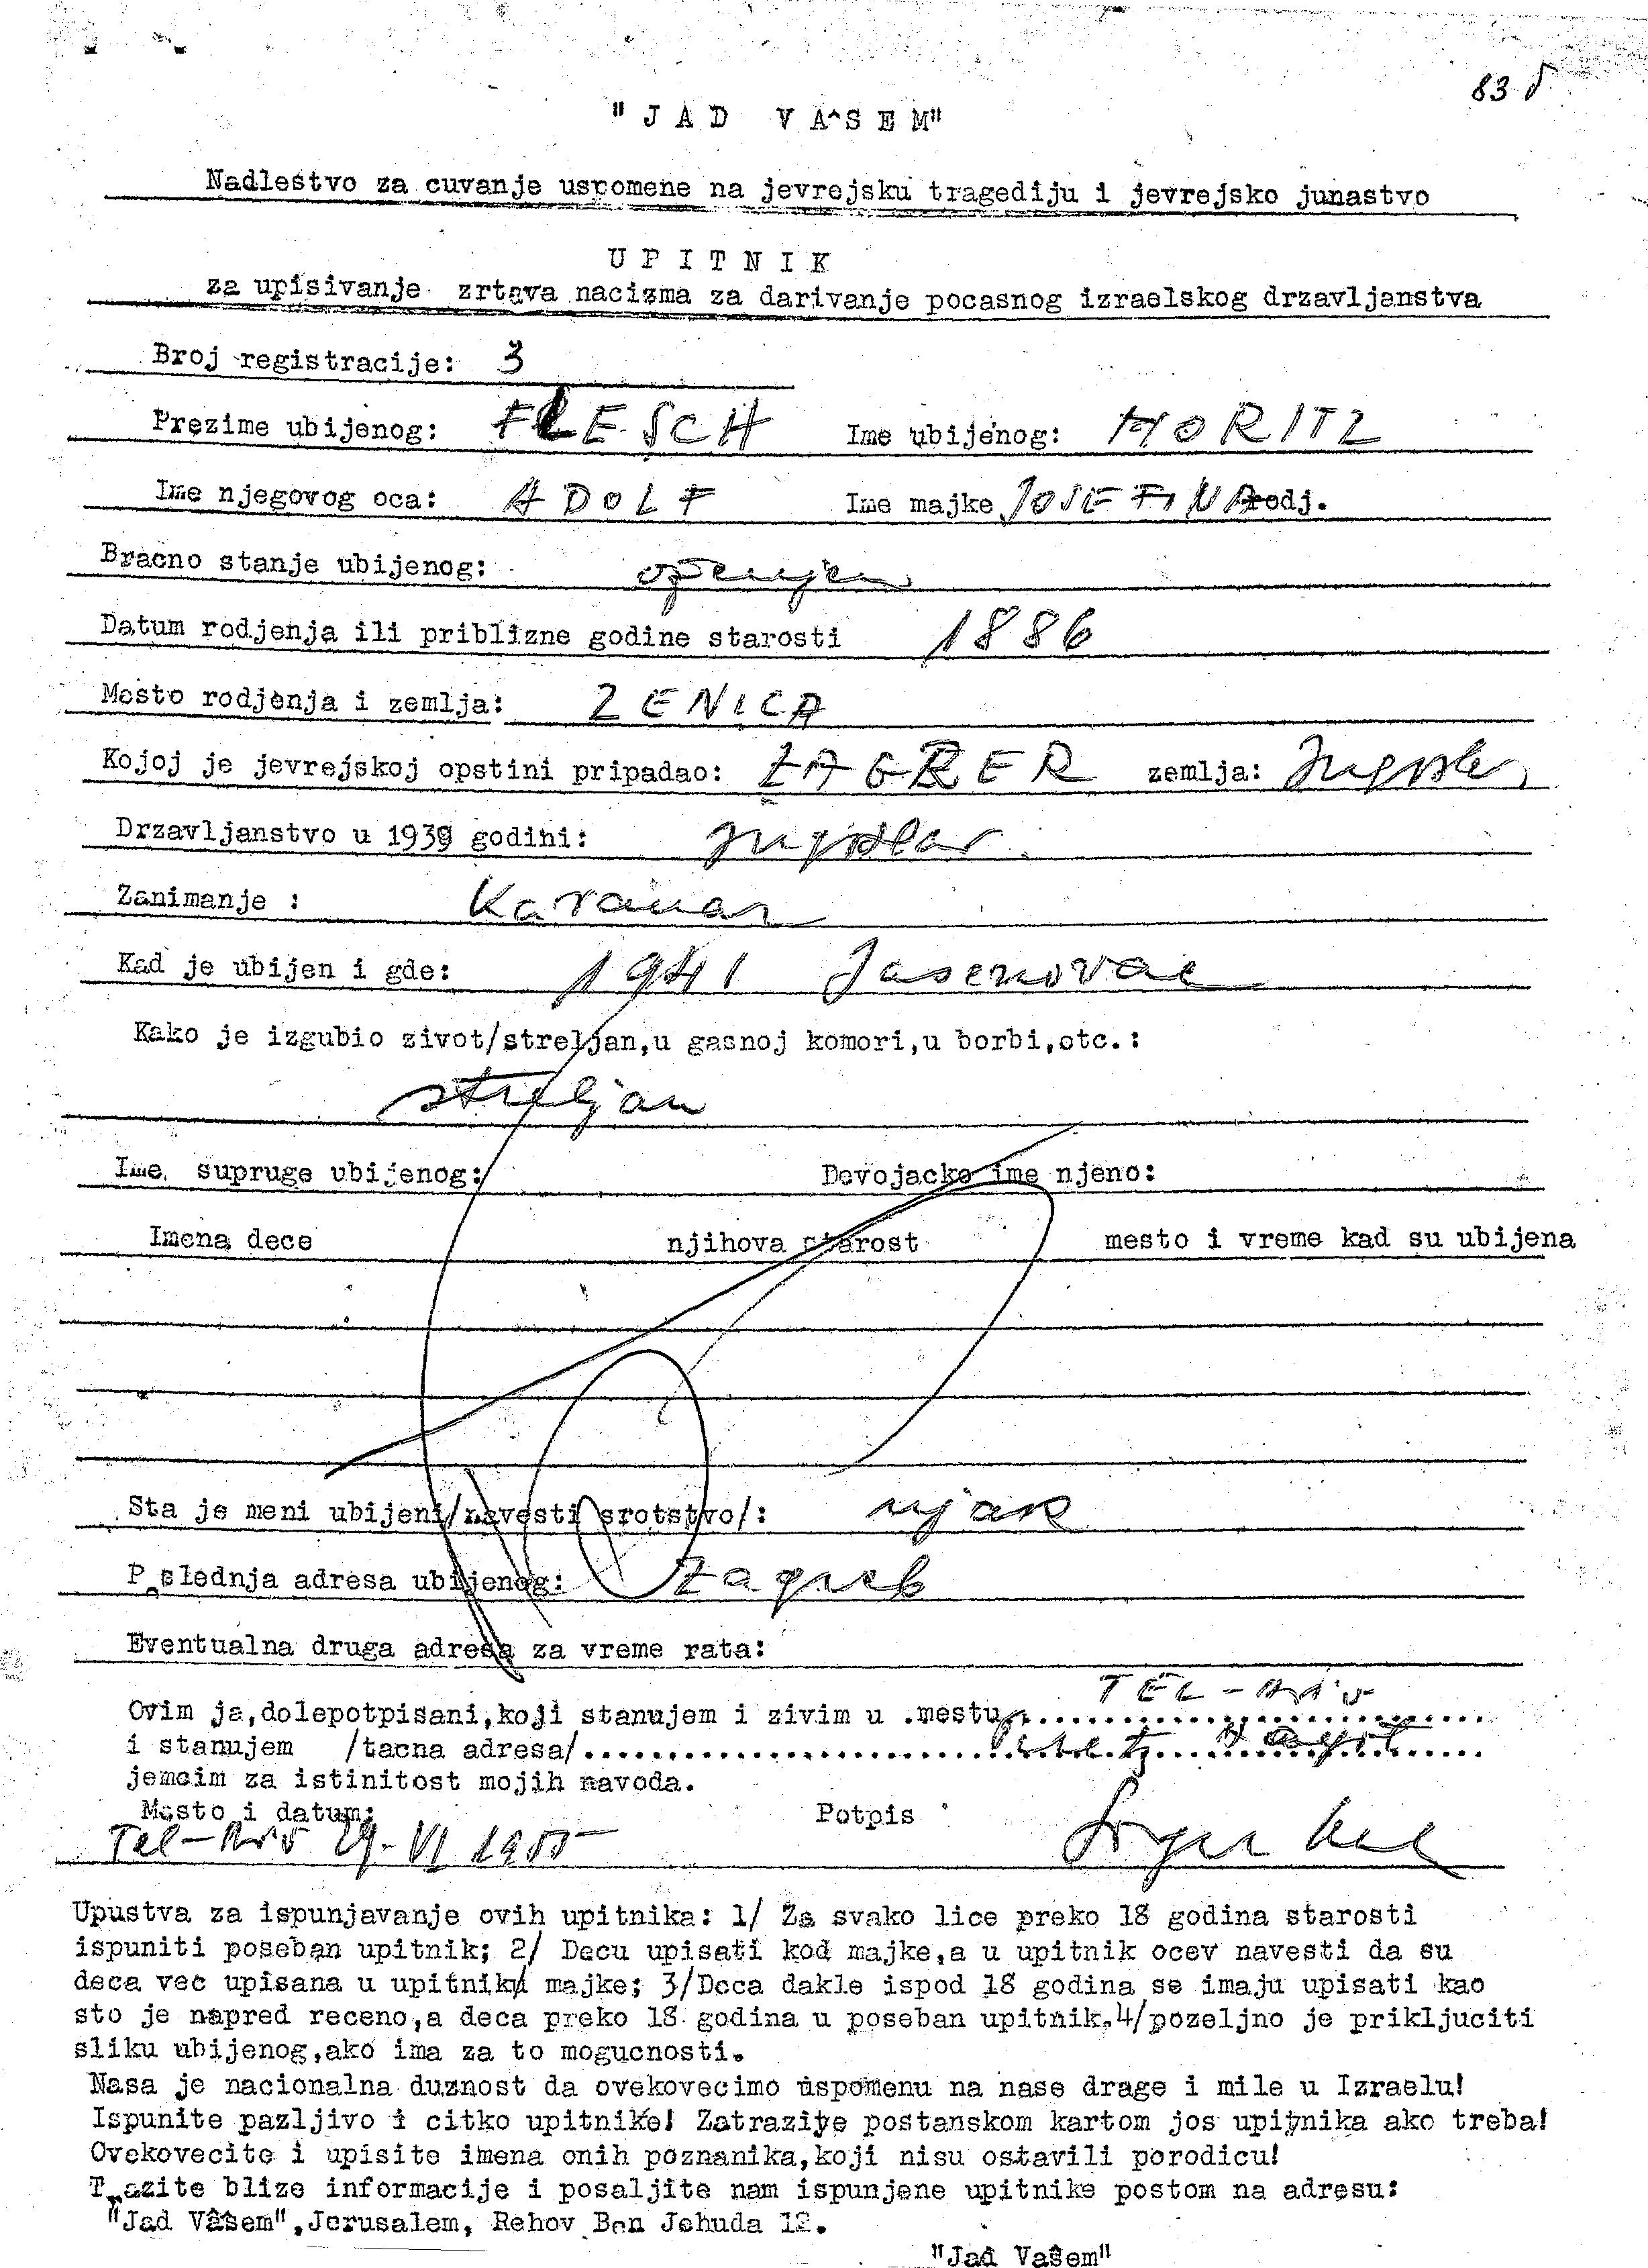 83
"JAD VA^SEM"
Nadlestvo za cuvanje uspomene na jevrejsku tragediju i jevrejsko junastvo
UPITNIK
za upisivanje zrtava nacizma za darivanje pocasnog izraelskog drzavljanstva
Broj registracije: 3
Prezime ubijenog: FLESCH Ime ubijenog: MORITZ
Ime njegovog oca: ADOLF Ime majke JOSEFINA rodj.
Bracno stanje ubijenog: ozenjen
Datum rodjenja ili priblizne godine starosti 1886
Mesto rodjenja i zemlja: ZENICA
Kojoj je jevrejskoj opstini pripadao: ZAGREB zemlja:
Drzavljanstvo u 1939 godini:
Zanimanje :
Kad je ubijen i gde: 1941 Jasenovac
Kako je izgubio zivot/streljan,u gasnoj komori,u borbi,etc.:
streljan
Ime supruge ubijenog: Devojacko ime njeno:
Imena dece njihova starost mesto i vreme kad su ubijena
Sta je meni ubijeni/navesti srotstvo/: ujak
Poslednja adresa ubijenog: Zagreb
Eventualna druga adresa za vreme rata:
TEL-AVIV
Ovim ja,dolepotpisani,koji stanujem i zivim u .mestu..............................
i stanujem /tacna adresa/..............................
jemcim za istinitost mojih navoda.
Mesto i datum: Potpis
Tel-Aviv 29-VI 1955
Upustva za ispunjavanje ovih upitnika: 1/ Za svako lice preko 18 godina starosti
ispuniti poseban upitnik; 2/ Decu upisati kod majke,a u upitnik ocev navesti da su
deca vec upisana u upitniku majke; 3/Deca dakle ispod 18 godina se imaju upisati kao
sto je napred receno,a deca preko 18 godina u poseban upitnik.4/pozeljno je prikljuciti
sliku ubijenog,ako ima za to mogucnosti.
Nasa je nacionalna duznost da ovekovecimo uspomenu na nase drage i mile u Izraelu!
Ispunite pazljivo i citko upitnike! Zatrazite postanskom kartom jos upitnika ako treba!
Ovekovecite i upisite imena onih poznanika,koji nisu ostavili porodicu!
Trazite blize informacije i posaljite nam ispunjene upitnike postom na adresu:
"Jad Vâsem",Jerusalem, Rehov Ben Jehuda 12.
"Jad Vašem"